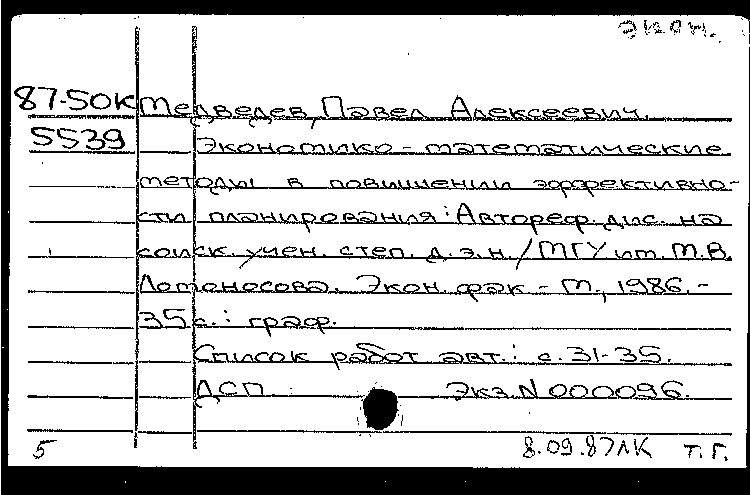 экон.
87-50К Медведев, Павел Алексеевич.
5539 Экономико-математические
методы в повышении эффективно-
сти планирования: Автореф. дис. на
соиск. учен. степ. д.э.н. / МГУ им. М.В.
Ломоносова. Экон. фак - М., 1986. -
35 с.: граф.
Список работ авт.: с. 31-35.
ДСП. Экз. N 000096.
5 8.09.87ЛК Т.Г.